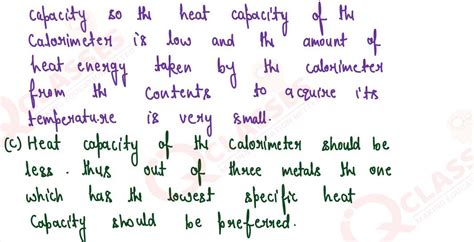 capacity so the heat capacity of the
Calorimeter is low and the amount of
heat energy taken by the calorimeter
from the contents to acquire its
temperature is very small.
(c) Heat capacity of the Calorimeter should be
less. thus out of three metals the one
which has the lowest specific heat
Capacity should be preferred.